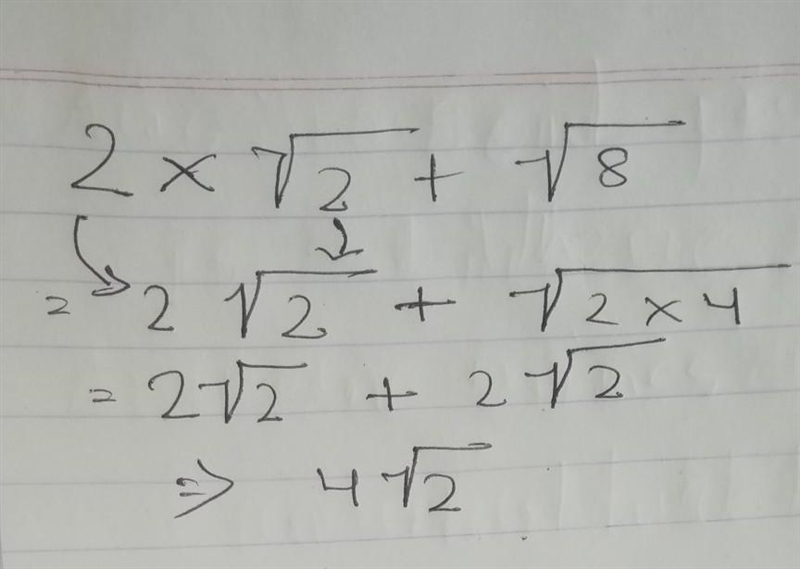 2 × √2 + √8
= 2 √2 + √2 × 4
= 2√2 + 2√2
⇒ 4√2